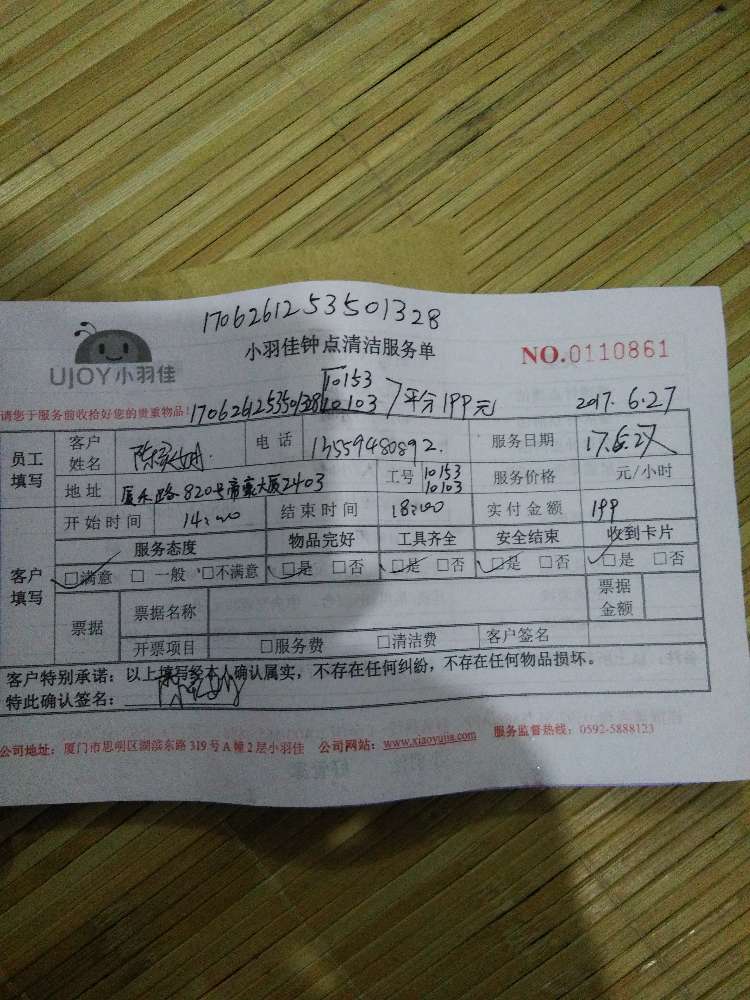 1706261253501328
UJOY小羽佳
小羽佳钟点清洁服务单
NO.0110861
10153
请您于服务前收拾好您的贵重物品!
1706261253501328 10103 平分199元
2017.6.27
员工填写 客户姓名 电话 13559480892. 服务日期 17.6.27
地址 厦禾路820号帝豪大厦2403 工号 10153 10103 服务价格 元/小时
客户填写 开始时间 14:00 结束时间 18:00 实付金额 199
服务态度 物品完好 工具齐全 安全结束 收到卡片
□满意 □一般 □不满意 □是 □否 □是 □否 □是 □否 □是 □否
票据 票据名称 票据金额
开票项目 □服务费 □清洁费 客户签名
客户特别承诺：以上填写经本人确认属实，不存在任何纠纷，不存在任何物品损坏。
特此确认签名：
公司地址：厦门市思明区湖滨东路319号A幢2层小羽佳 公司网站：www.xiaoyujia.com 服务监督热线：0592-5888123